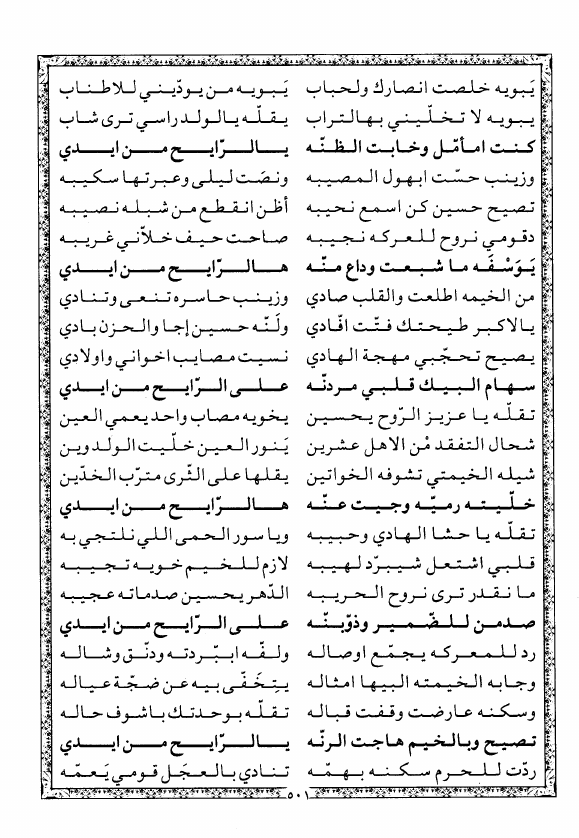 يَبويه خلصت انصارك ولحباب يَبويه من يودّيني للاطناب
يبويه لا تخلّيني بهالتراب يقلّه يالولد راسي ترى شاب
كنت امأمّل وخابت الظنّه يالرّايح من ايدي
وزينب حسّت ابهول المصيبه ونصَت ليلى وعبرتها سكيبه
تصيح حسين كن اسمع نحيبه أظن انقطع من شبله نصيبه
دقومي نروح للمعركه نجيبه صاحت حيف خلاّني غريبه
يَوَسْفَه ما شبعت وداع منّه هالرّايح من ايدي
من الخيمه اطلعت والقلب صادي وزينب حاسره تنعى وتنادي
يالاكبر طيحتك فتّت افّادي ولَنّه حسين إجا والحزن بادي
يصيح تحجّبي مهجة الهادي نسيت مصايب اخواني واولادي
سهام البيك قلبي مردنّه على الرّايح من ايدي
تقلّه يا عزيز الرّوح يحسين يخويه مصاب واحد يعمي العين
شحال التفقد مْن الاهل عشرين يَنور العين خلّيت الولد وين
شيله الخيمتي تشوفه الخواتين يقلها على الثّرى مترّب الخدّين
خلّيته رميّه وجيت عنّه هالرّايح من ايدي
تقلّه يا حشا الهادي وحبيبه ويا سور الحمى اللي نلتجي به
قلبي اشتعل شيبرّد لهيبه لازم للخيم خويه تجيبه
ما نقدر ترى نروح الحريبه الدّهر يحسين صدماته عجيبه
صدمن للضّمير وذوّبنّه على الرّايح من ايدي
رد للمعركه يجمّع اوصاله ولفّه ابّردته ودنّق وشاله
وجابه الخيمته البيها امثاله يتِخَفّى بيه عن ضجّة عياله
وسكنه عارضت وقفت قباله تقلّه بوحدتك باشوف حاله
تصيح وبالخيم هاجت الرنّه يالرّايح من ايدي
ردّت للحرم سكنه بهمّه تنادي بالعجَل قومي يَعمّه
٥٠١